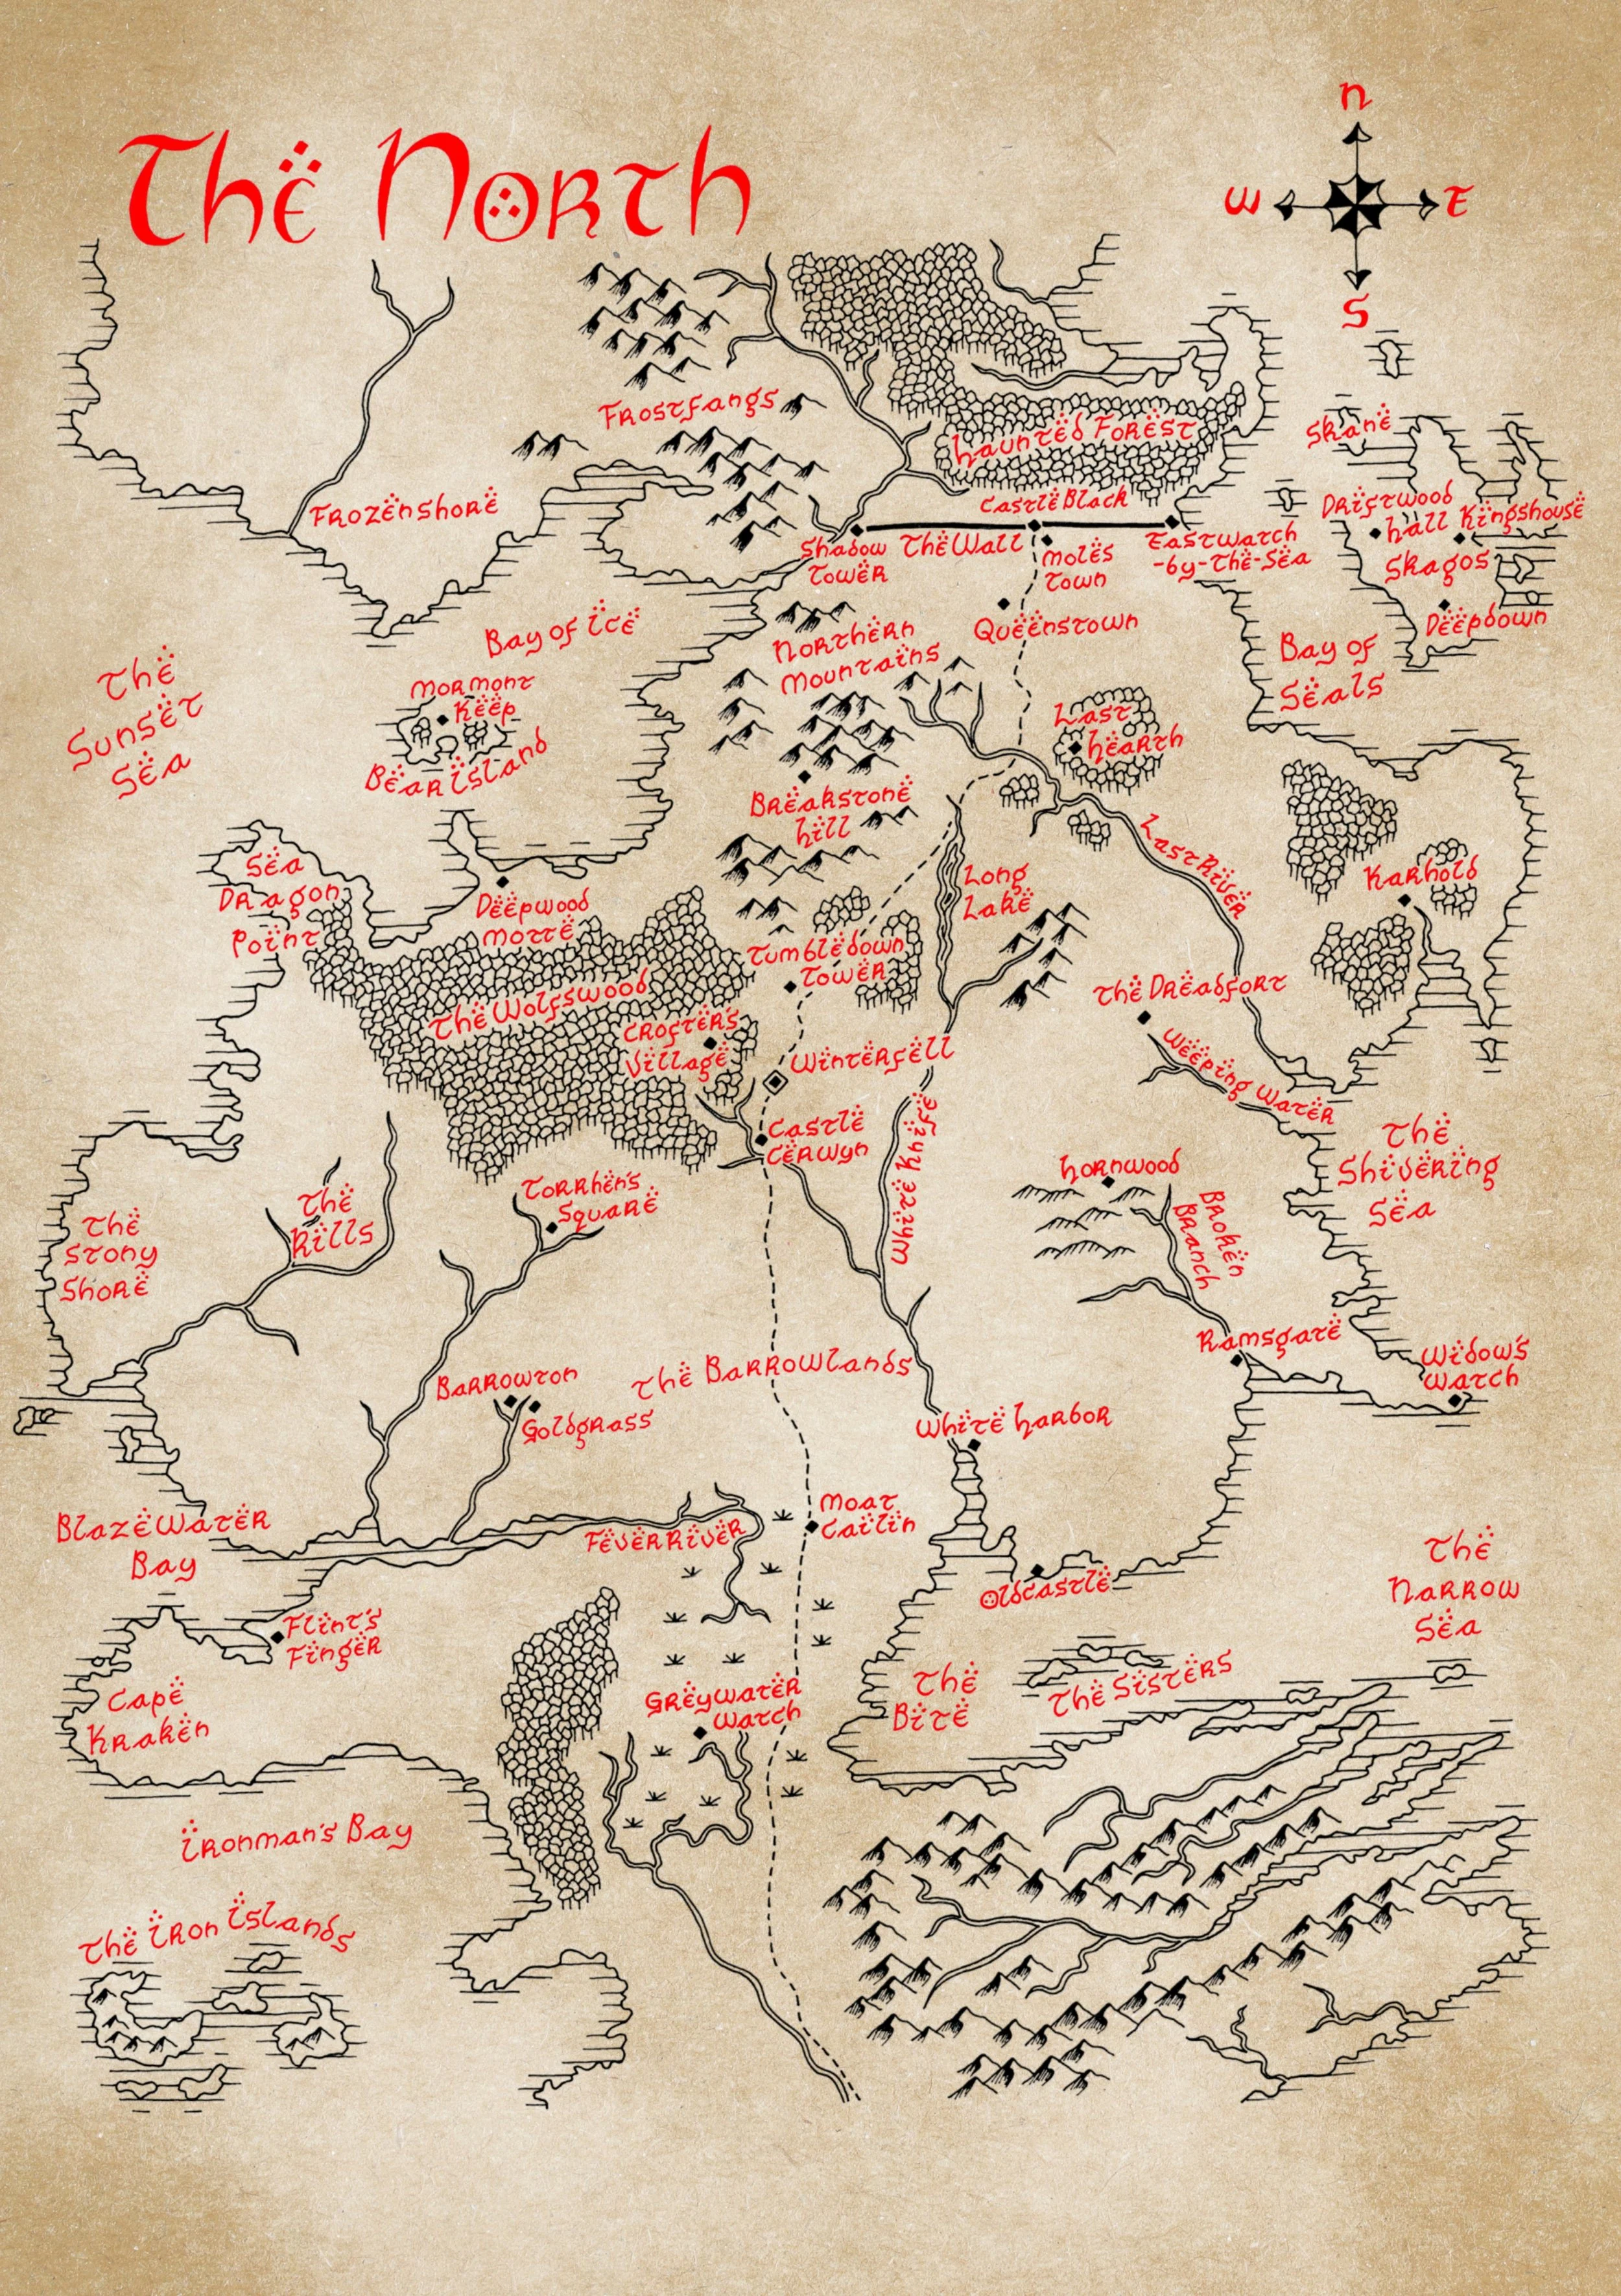 The North
N
W
E
S
Frostfangs
Haunted Forest
Skane
Castle Black
Driftwood
Hall
Kingshouse
Frozenshore
Shadow
Tower
The Wall
Moles
Town
Eastwatch
-by-The-Sea
Skagos
Deepdown
Bay of Ice
Northern
Mountains
Queenstown
Bay of
Seals
The
Sunset
Sea
Mormont
Keep
Bear Island
Last
Hearth
Breakstone
Hill
Last River
Sea
Dragon
Point
Deepwood
Motte
Long
Lake
Karhold
Tumbledown
Tower
The Wolfswood
Crofter's
Village
The Dreadfort
Winterfell
Weeping Water
Castle
Cerwyn
White Knife
The
Shivering
Sea
Hornwood
Broken
Branch
Torrhen's
Square
The
Rills
The
Stony
Shore
Ramsgate
Widow's
Watch
Barrowton
Goldgrass
The Barrowlands
White Harbor
Blazewater
Bay
Fever River
Moat
Cailin
Oldcastle
The
Narrow
Sea
Flint's
Finger
Cape
Kraken
Greywater
Watch
The
Bite
The Sisters
Ironman's Bay
The Iron Islands